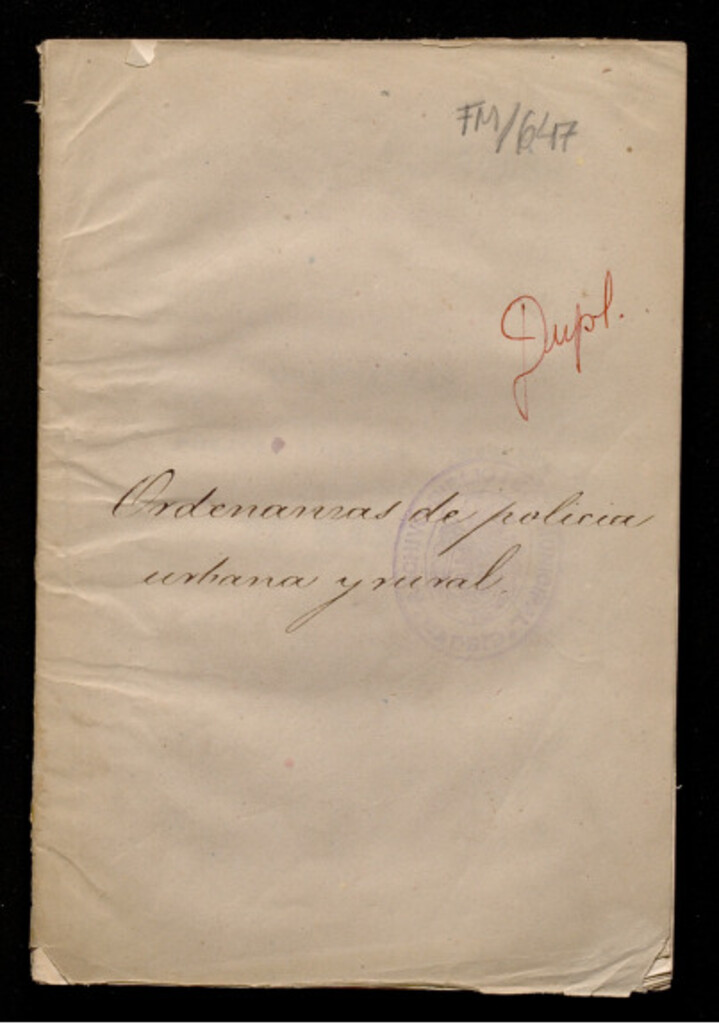 FM/647
Dupl.
Ordenanzas de policia
urbana y rural.